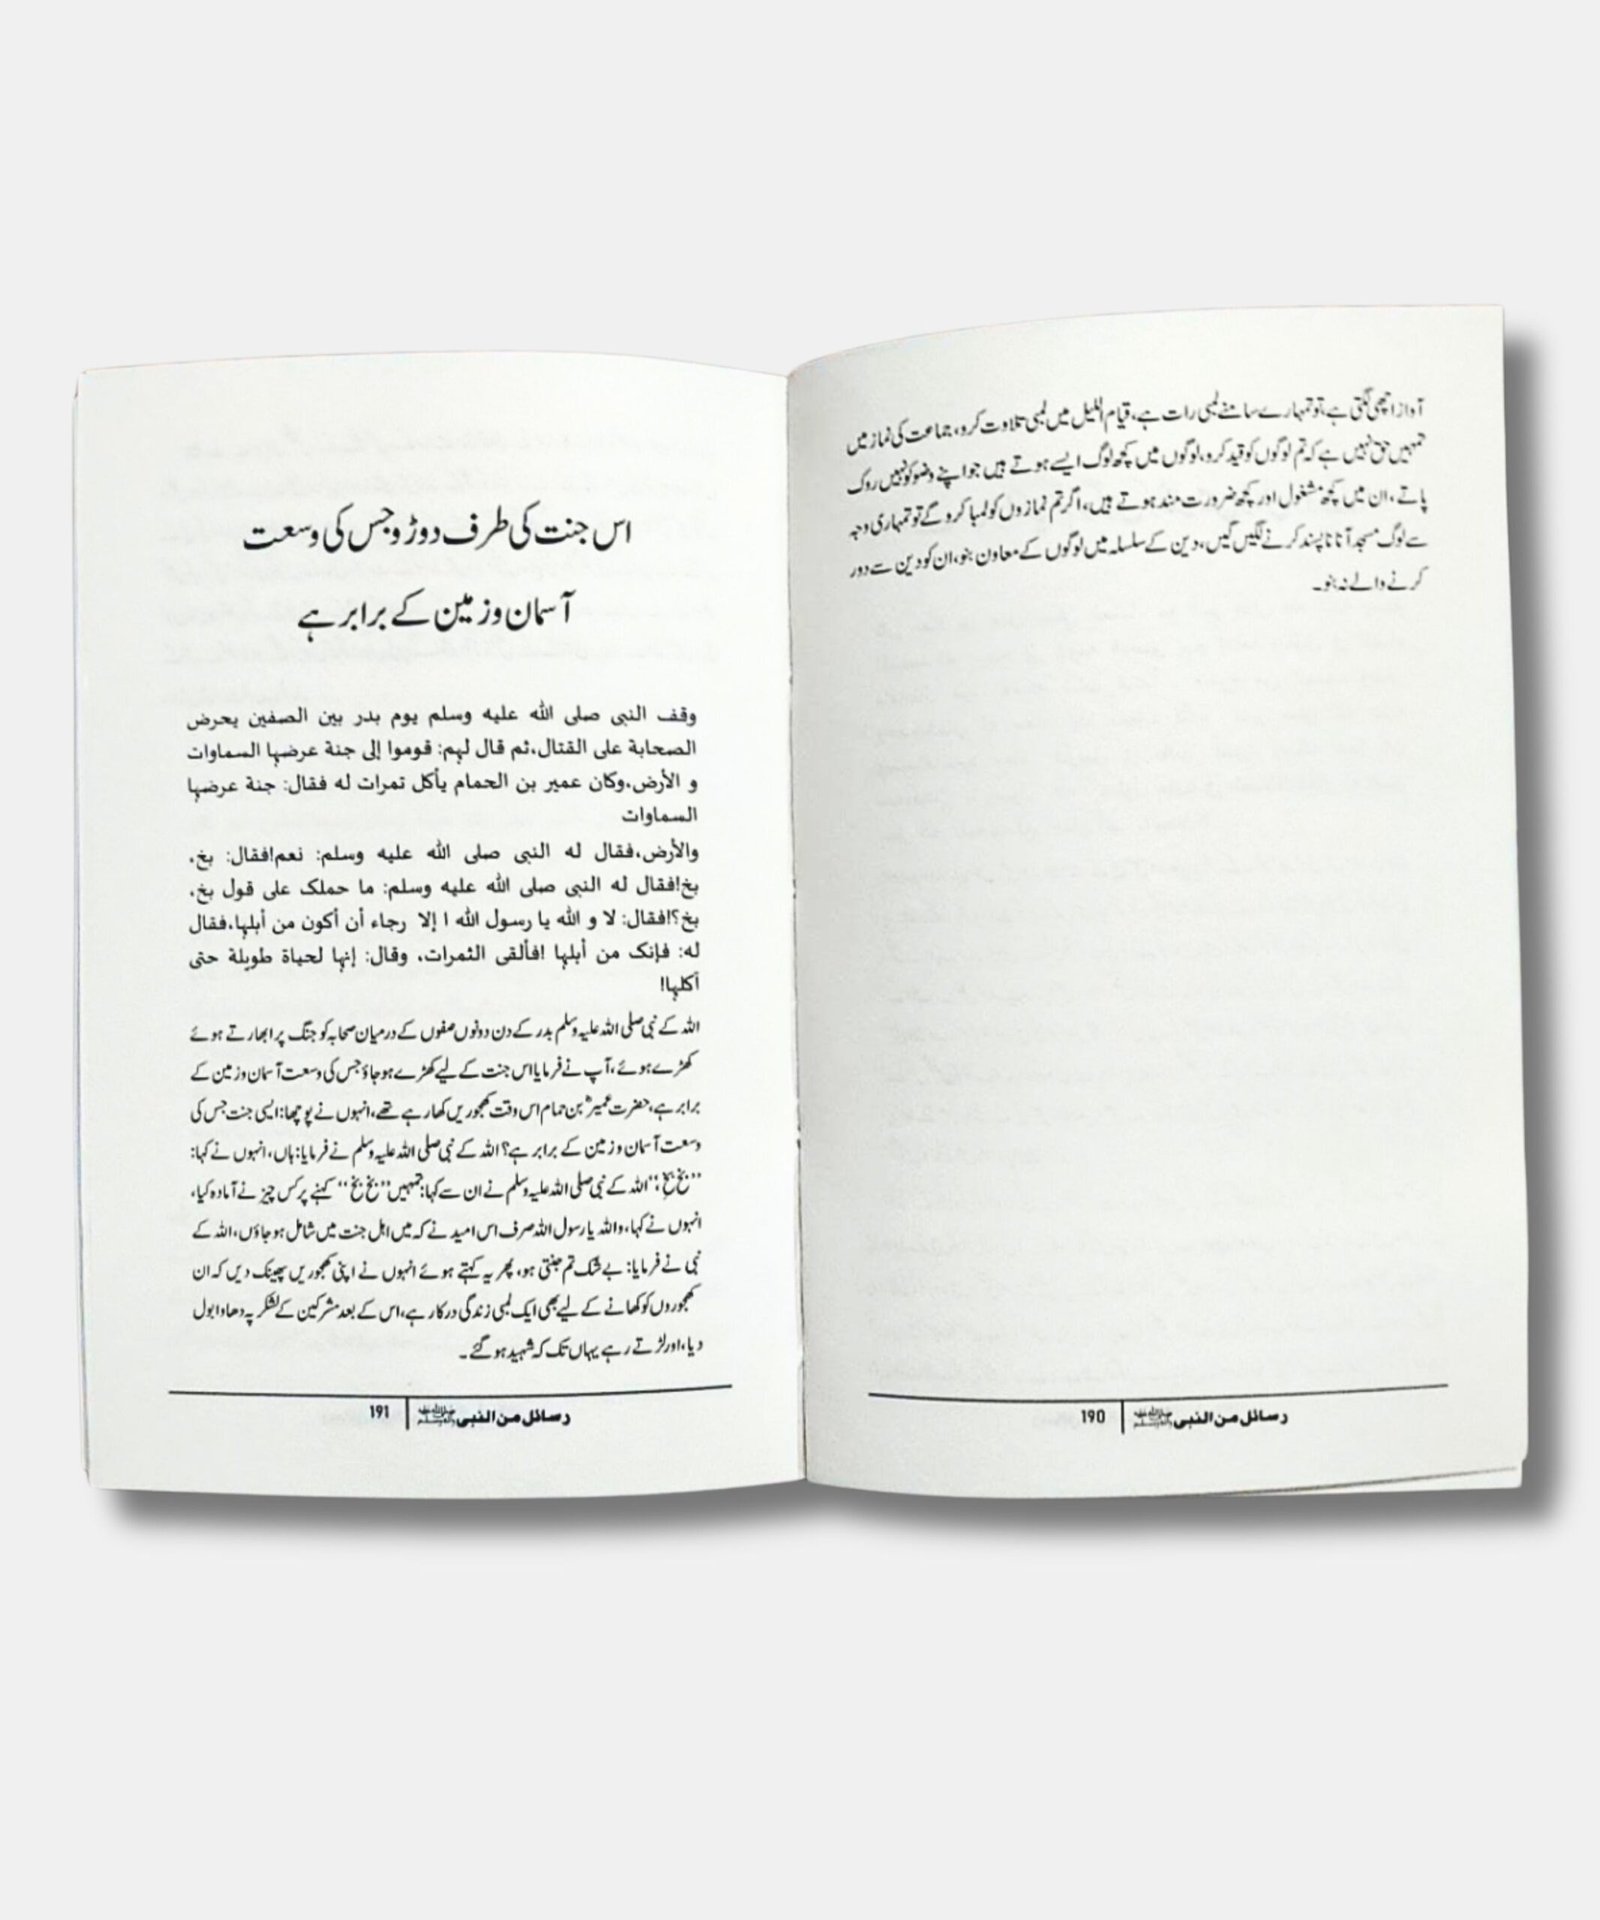 آواز اچھی لگتی ہے، تو تمہارے سامنے لمبی رات ہے، قیام اللیل میں لمبی تلاوت کرو، جماعت کی نماز میں
تمہیں حق نہیں ہے کہ تم لوگوں کو قید کرو، لوگوں میں کچھ لوگ ایسے ہوتے ہیں جو اپنے وضو کو نہیں روک
پاتے، ان میں کچھ مشغول اور کچھ ضرورت مند ہوتے ہیں، اگر تم نمازوں کو لمبا کرو گے تو تمہاری وجہ
سے لوگ مسجد آنا ناپسند کرنے لگیں گیں، دین کے سلسلہ میں لوگوں کے معاون بنو، ان کو دین سے دور
کرنے والے نہ بنو۔
رسائل من النبی ﷺ | 190
اس جنت کی طرف دوڑو جس کی وسعت
آسمان و زمین کے برابر ہے
وقف النبی صلی اللہ علیہ وسلم یوم بدر بین الصفین یحرض
الصحابة علی القتال،ثم قال لہم: قوموا إلی جنة عرضہا السماوات
و الأرض،وکان عمیر بن الحمام یأکل تمرات لہ فقال: جنة عرضہا
السماوات
والأرض،فقال لہ النبی صلی اللہ علیہ وسلم: نعم!فقال: بخ،
بخ!فقال لہ النبی صلی اللہ علیہ وسلم: ما حملک علی قول بخ،
بخ؟!فقال: لا و اللہ یا رسول اللہ ا إلا رجاء أن أکون من أہلہا،فقال
لہ: فإنک من أہلہا !فألقی الثمرات، وقال: إنہا لحیاة طویلة حتی
أکلہا!
اللہ کے نبی صلی اللہ علیہ وسلم بدر کے دن دونوں صفوں کے درمیان صحابہ کو جنگ پر ابھارتے ہوئے
کھڑے ہوئے، آپ نے فرمایا اس جنت کے لیے کھڑے ہو جاؤ جس کی وسعت آسمان و زمین کے
برابر ہے، حضرت عمیرؓ بن حمام اس وقت کھجوریں کھا رہے تھے، انہوں نے پوچھا: ایسی جنت جس کی
وسعت آسمان و زمین کے برابر ہے؟ اللہ کے نبی صلی اللہ علیہ وسلم نے فرمایا: ہاں، انہوں نے کہا:
’’بخ بخ‘‘؛ اللہ کے نبی صلی اللہ علیہ وسلم نے ان سے کہا: تمہیں ’’بخ بخ‘‘ کہنے پر کس چیز نے آمادہ کیا،
انہوں نے کہا، واللہ یا رسول اللہ صرف اس امید نے کہ میں اہل جنت میں شامل ہو جاؤں، اللہ کے
نبی نے فرمایا: بے شک تم جنتی ہو، پھر یہ کہتے ہوئے انہوں نے اپنی کھجوریں پھینک دیں کہ ان
کھجوروں کو کھانے کے لیے بھی ایک لمبی زندگی درکار ہے، اس کے بعد مشرکین کے لشکر پہ دھاوا بول
دیا، اور لڑتے رہے یہاں تک کہ شہید ہو گئے۔
رسائل من النبی ﷺ | 191